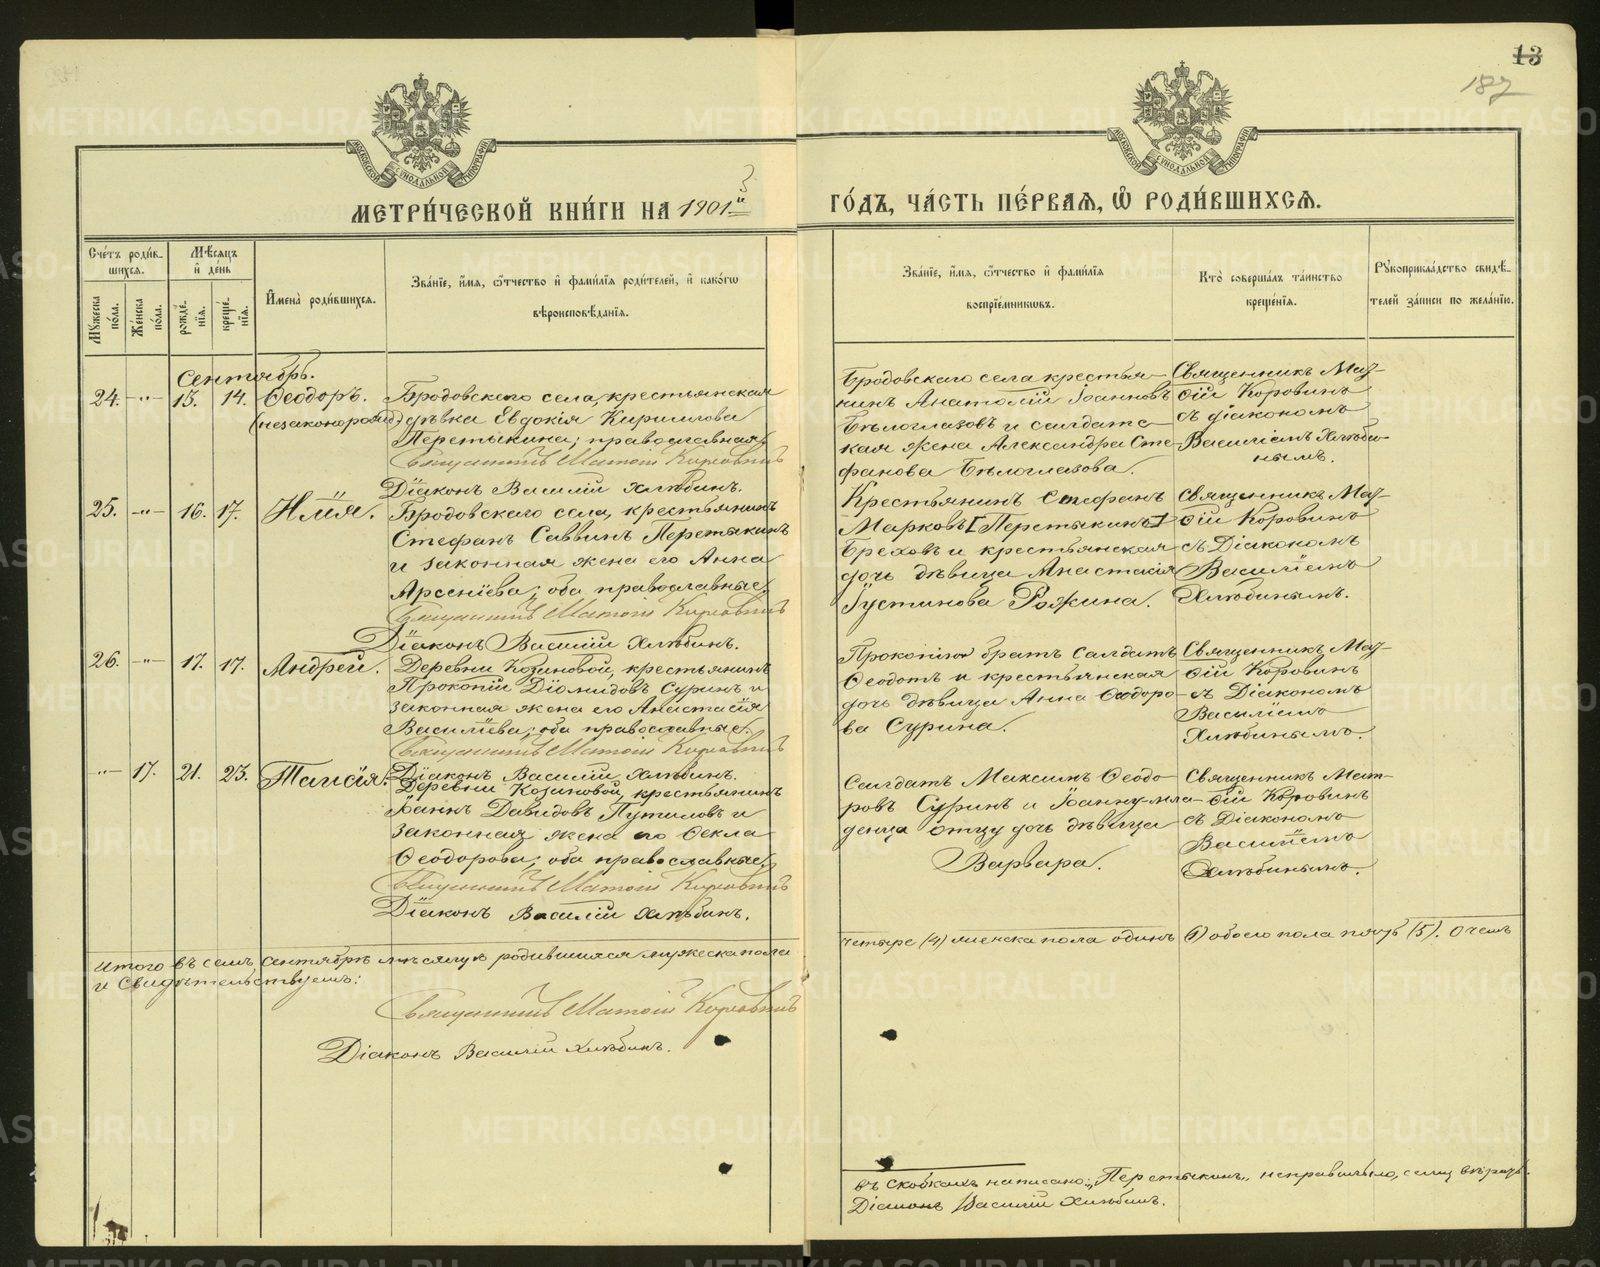 13
187
МЕТРИ́ЧЕСКОЙ КНИ́ГИ НА 1901й
ГО́ДЪ, ЧА́СТЬ ПЕ́РВАЯ, Ѽ РОДИ́ВШИХСЯ.
Сче́тъ роди́в-
шихся.
Мꙋжеска по́ла.
Же́нска по́ла.
Мѣ́сяцъ
и҆ де́нь
рожде́нїя.
креще́нїя.
И҆мена̀ роди́вшихся.
Зва́нїе, и҆́мя, ѻ҆́тчество и҆ фами́лїя роди́телей, и҆ како́гѡ
вѣроисповѣ́данїя.
Зва́нїе, и҆́мя, ѻ҆́тчество и҆ фами́лїя
воспрїе́мникѡвъ.
Кто̀ соверша́лъ та́инство
креще́нїя.
Рꙋкоприкла́дство свидѣ́-
телей за́писи по жела́нїю.
Сентябрь.
24. -"- 13. 14. Ѳеодоръ.
(незаконорожд)
Бродовскаго села, крестьянская
дѣвка Евдокія Кириллова
Перетыкина; православная
Священникъ Матѳій Коровинъ
Діаконъ Василій Хлѣбинъ.
Бродовскаго села крестья-
нинъ Анатолій Іоанновъ
Бѣлоглазовъ и солдатс-
кая жена Александра Сте-
фанова Бѣлоглазова.
Священникъ Мат-
ѳій Коровинъ
съ діакономъ
Василіемъ Хлѣби-
нымъ.
25. -"- 16. 17. Илія.
Бродовскаго села, крестьянинъ
Стефанъ Саввинъ Перетыкинъ
и законная жена его Анна
Арсеніева, оба православные
Священникъ Матѳій Коровинъ
Діаконъ Василій Хлѣбинъ.
Крестьянинъ Стефанъ
Марковъ [Перетыкинъ]
Бреховъ и крестьянская
дочь дѣвица Анастасія
Іустинова Рожина.
Священникъ Мат-
ѳій Коровинъ
съ Діакономъ
Василіемъ
Хлѣбинымъ.
26. -"- 17. 17. Андрей.
Деревни Козиновой, крестьянинъ
Прокопій Діомидовъ Суринъ и
законная жена его Анастасія
Василіева; оба православные.
Священникъ Матѳій Коровинъ
Діаконъ Василій Хлѣбинъ.
Прокопія братъ солдатъ
Ѳеодотъ и крестьянская
дочь дѣвица Анна Ѳеодоро-
ва Сурина.
Священникъ Мат-
ѳій Коровинъ
съ Діакономъ
Василіемъ
Хлѣбинымъ.
-"- 17. 21. 23. Таисія.
Деревни Козиновой, крестьянинъ
Іоаннъ Давидовъ Путиловъ и
законная жена его Ѳекла
Ѳеодорова; оба православные
Священникъ Матѳій Коровинъ
Діаконъ Василій Хлѣбинъ.
Солдатъ Максимъ Ѳеодо-
ровъ Суринъ и Іоанну мла-
денца отцу дочь дѣвица
Варвара.
Священникъ Мат-
ѳій Коровинъ
съ Діакономъ
Василіемъ
Хлѣбинымъ.
Итого въ семъ Сентябрѣ мѣсяцѣ родившихся мужеска пола
четыре (4) женска пола одинъ (1) обоего пола пять (5). О чемъ
и свидѣтельствуемъ:
Священникъ Матѳій Коровинъ
Діаконъ Василій Хлѣбинъ.
въ скобкахъ написано: „Перетыкинъ„ неправильно, чему вѣрить.
Діаконъ Василій Хлѣбинъ.
METRIKI.GASO-URAL.RU